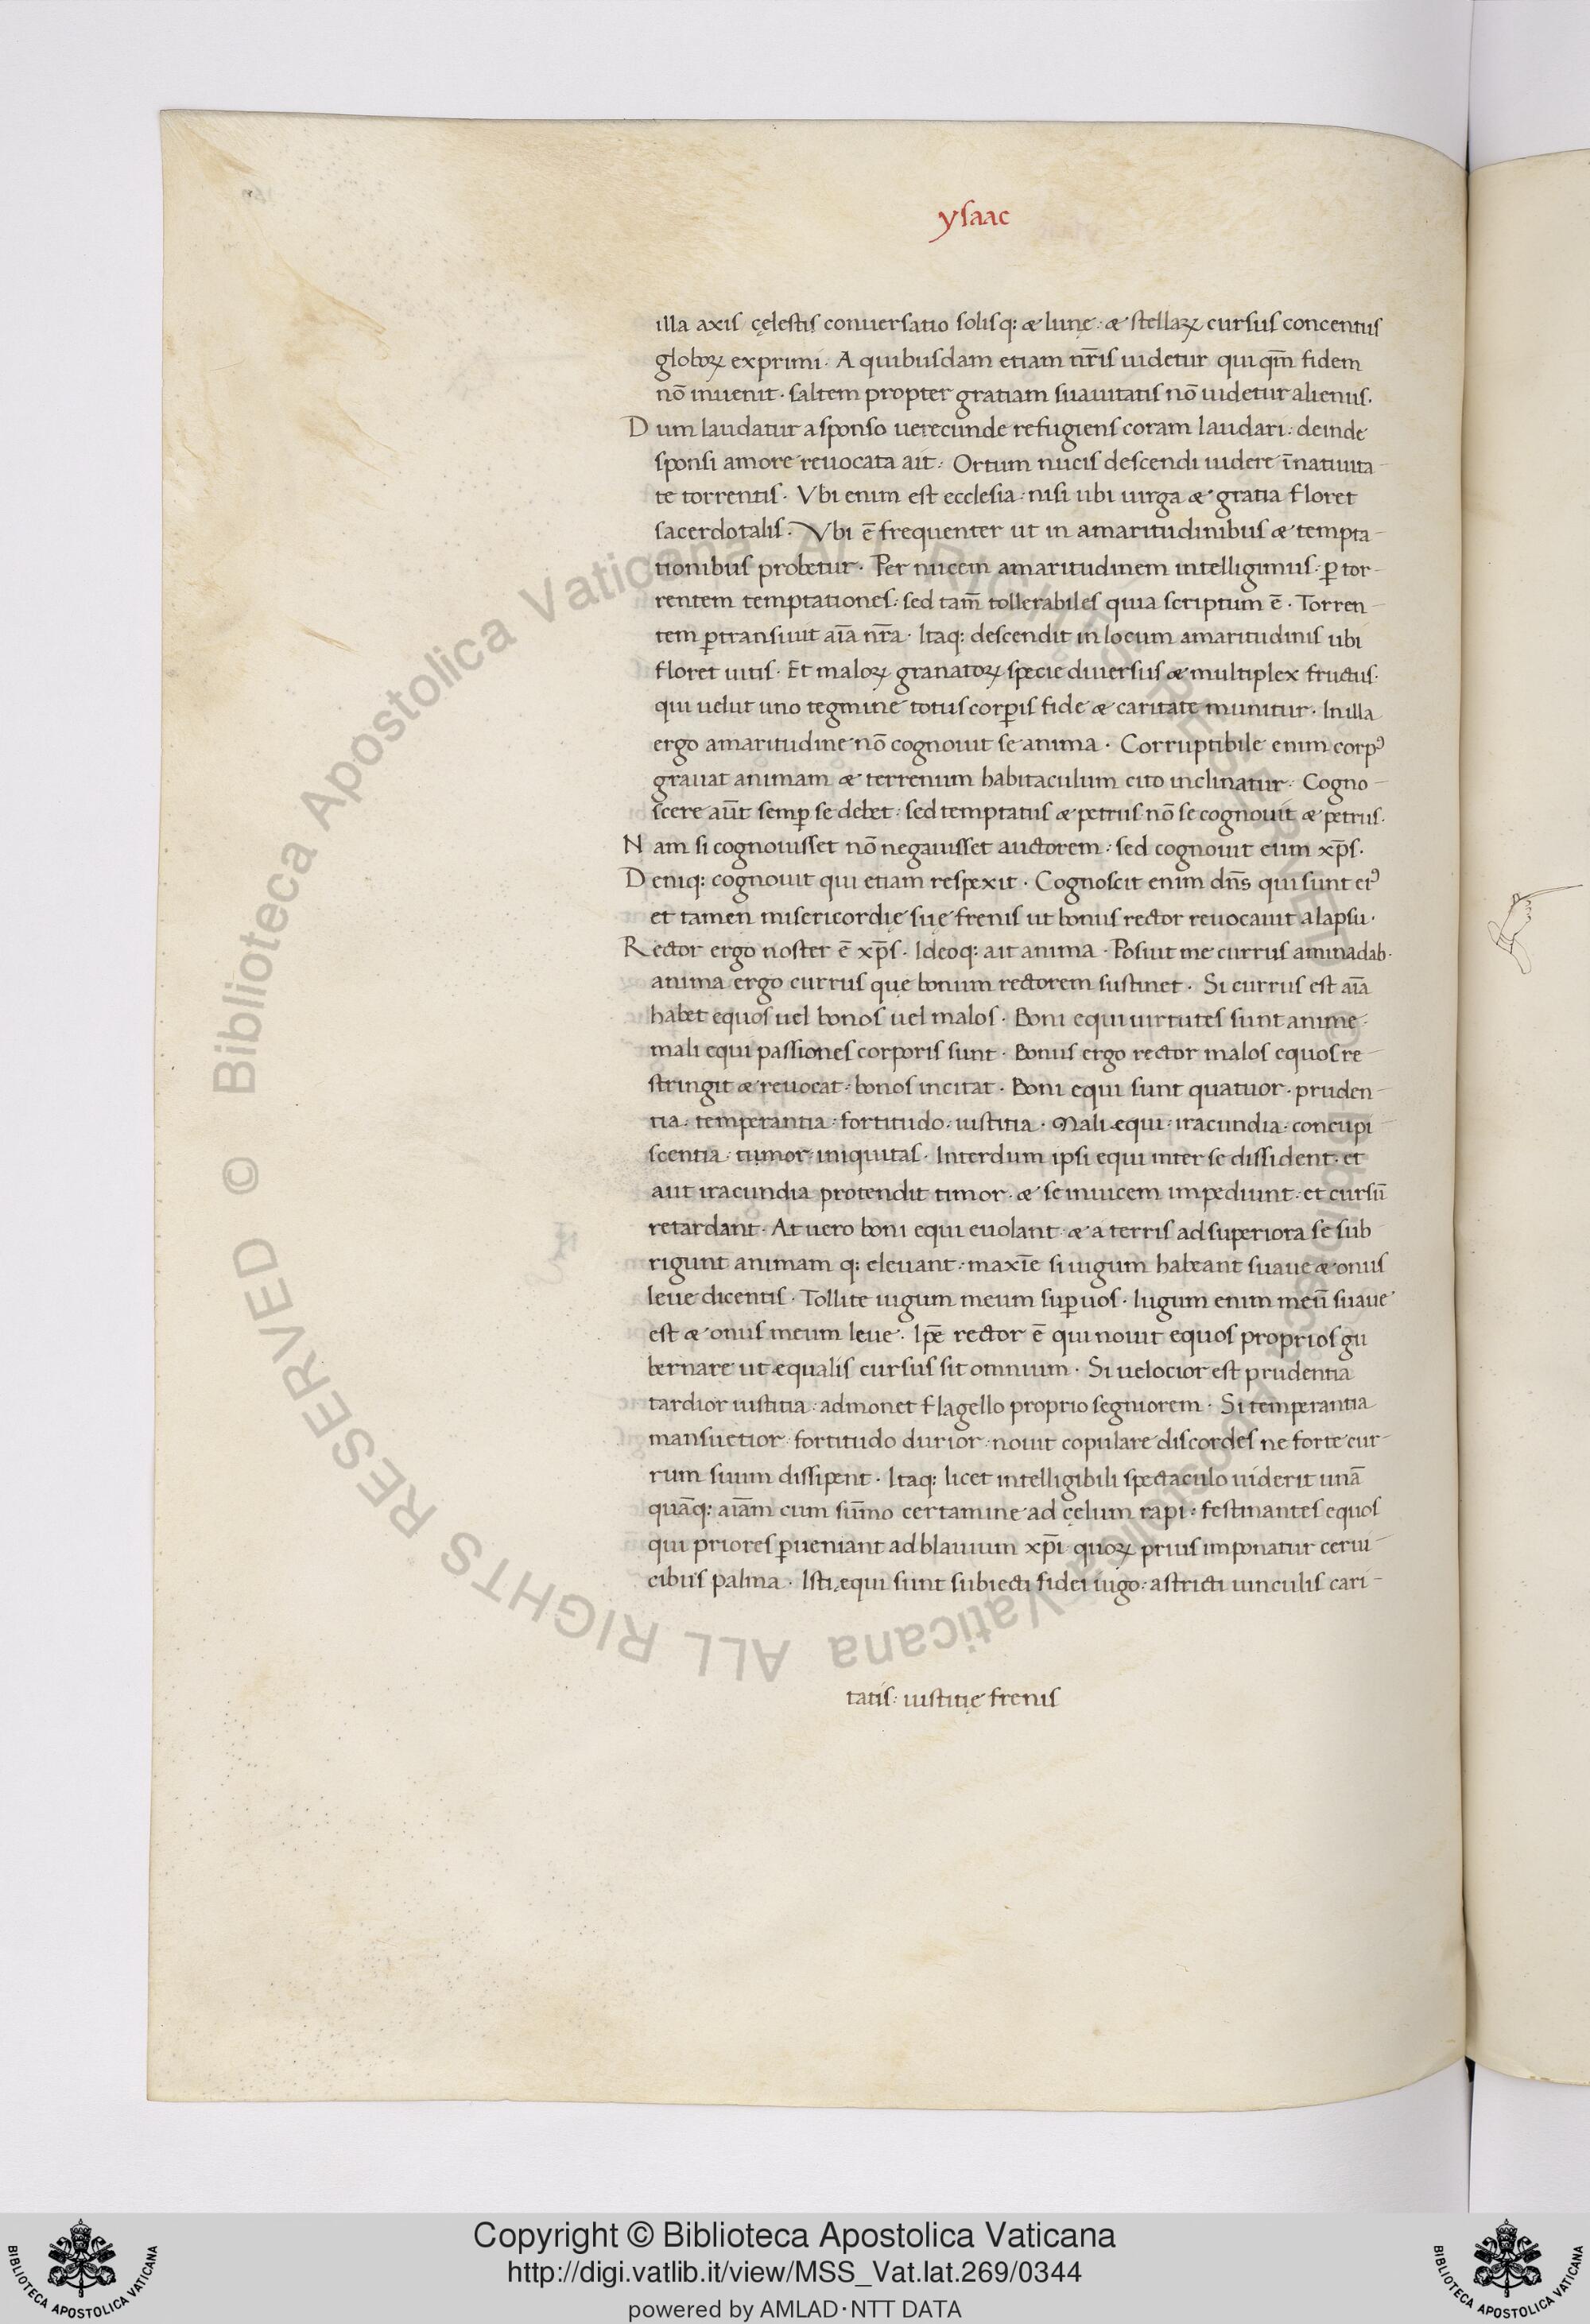 ysaac
illa axis cęlestis conuersatio solisq: æ lunę: æ stellaꝝ cursus concentus
globoꝝ exprimi. A quibusdam etiam nr̄is uidetur qui qm̄ fidem
nō inuenit. saltem propter gratiam suauitatis nō uidetur alienus.
Dum laudatur a sponso uerecunde refugiens coram laudari: deinde
sponsi amore reuocata ait: Ortum nucis descendi uidere īnatiuita-
te torrentis. Vbi enim est ecclesia: nisi ubi uirga æ gratia floret
sacerdotalis. Vbi ē frequenter ut in amaritudinibus æ tempta-
tionibus probetur. Per nucem amaritudinem intelligimus: ꝑ tor-
rentem temptationes: sed tam̄ tollerabiles quia scriptum ē. Torren-
tem ꝑtransiuit aīa nr̄a. Itaq: descendit in locum amaritudinis ubi
floret uitis. Et maloꝝ granatoꝝ specie diuersus æ multiplex fructus.
qui uelut uno tegmine totus corꝑis fide æ caritate munitur. In illa
ergo amaritudine nō cognouit se anima. Corruptibile enim corpꝰ
grauat animam æ terrenum habitaculum cito inclinatur. Cogno-
scere aūt semꝑ se debet: sed temptatus æ petrus nō se cognouit æ petrus.
Nam si cognouisset nō negauisset auctorem: sed cognouit eum xp̄s.
Deniq: cognouit qui etiam respexit. Cognoscit enim dn̄s qui sunt eiꝰ
et tamen misericordię suę frenis ut bonus rector reuocauit a lapsu.
Rector ergo noster ē xp̄s. Ideoq: ait anima. Posuit me currus aminadab.
anima ergo currus quę bonum rectorem sustinet. Si currus est aīa
habet equos uel bonos uel malos. Boni equi uirtutes sunt anime.
mali equi passiones corporis sunt. Bonus ergo rector malos equos re-
stringit æ reuocat: bonos incitat. Boni equi sunt quatuor. pruden-
tia: temperantia: fortitudo: iustitia. Mali equi: iracundia: concupi-
scentia: tumor: iniquitas. Interdum ipsi equi inter se dissident. et
aut iracundia protendit timor. æ se inuicem impediunt: et cursū
retardant. At uero boni equi euolant. æ a terris ad superiora se sub
rigunt animam q: eleuant: maxīe si iugum habeant suaue æ onus
leue dicentis. Tollite iugum meum suꝑ uos. Iugum enim meū suaue
est æ onus meum leue. Ip̄e rector ē qui nouit equos proprios gu
bernare ut equalis cursus sit omnium. Si uelocior est prudentia
tardior iustitia: admonet flagello proprio segniorem. Si temperantia
mansuetior: fortitudo durior: nouit copulare discordes ne forte cur-
rum suum dissipent. Itaq: licet intelligibili spectaculo uiderit unā
quāq: aīam cum sum̄o certamine ad cęlum rapi: festinantes equos
qui priores ꝑueniant ad blauium xp̄i quoꝝ prius imponatur cerui-
cibus palma. Isti equi sunt subiecti fidei iugo: astricti uinculis cari-
tatis: iustitię frenis
Copyright © Biblioteca Apostolica Vaticana
http://digi.vatlib.it/view/MSS_Vat.lat.269/0344
powered by AMLAD·NTT DATA
© Biblioteca Apostolica Vaticana ALL RIGHTS RESERVED
© Biblioteca Apostolica Vaticana ALL RIGHTS RESERVED
BIBLIOTECA APOSTOLICA VATICANA
BIBLIOTECA APOSTOLICA VATICANA